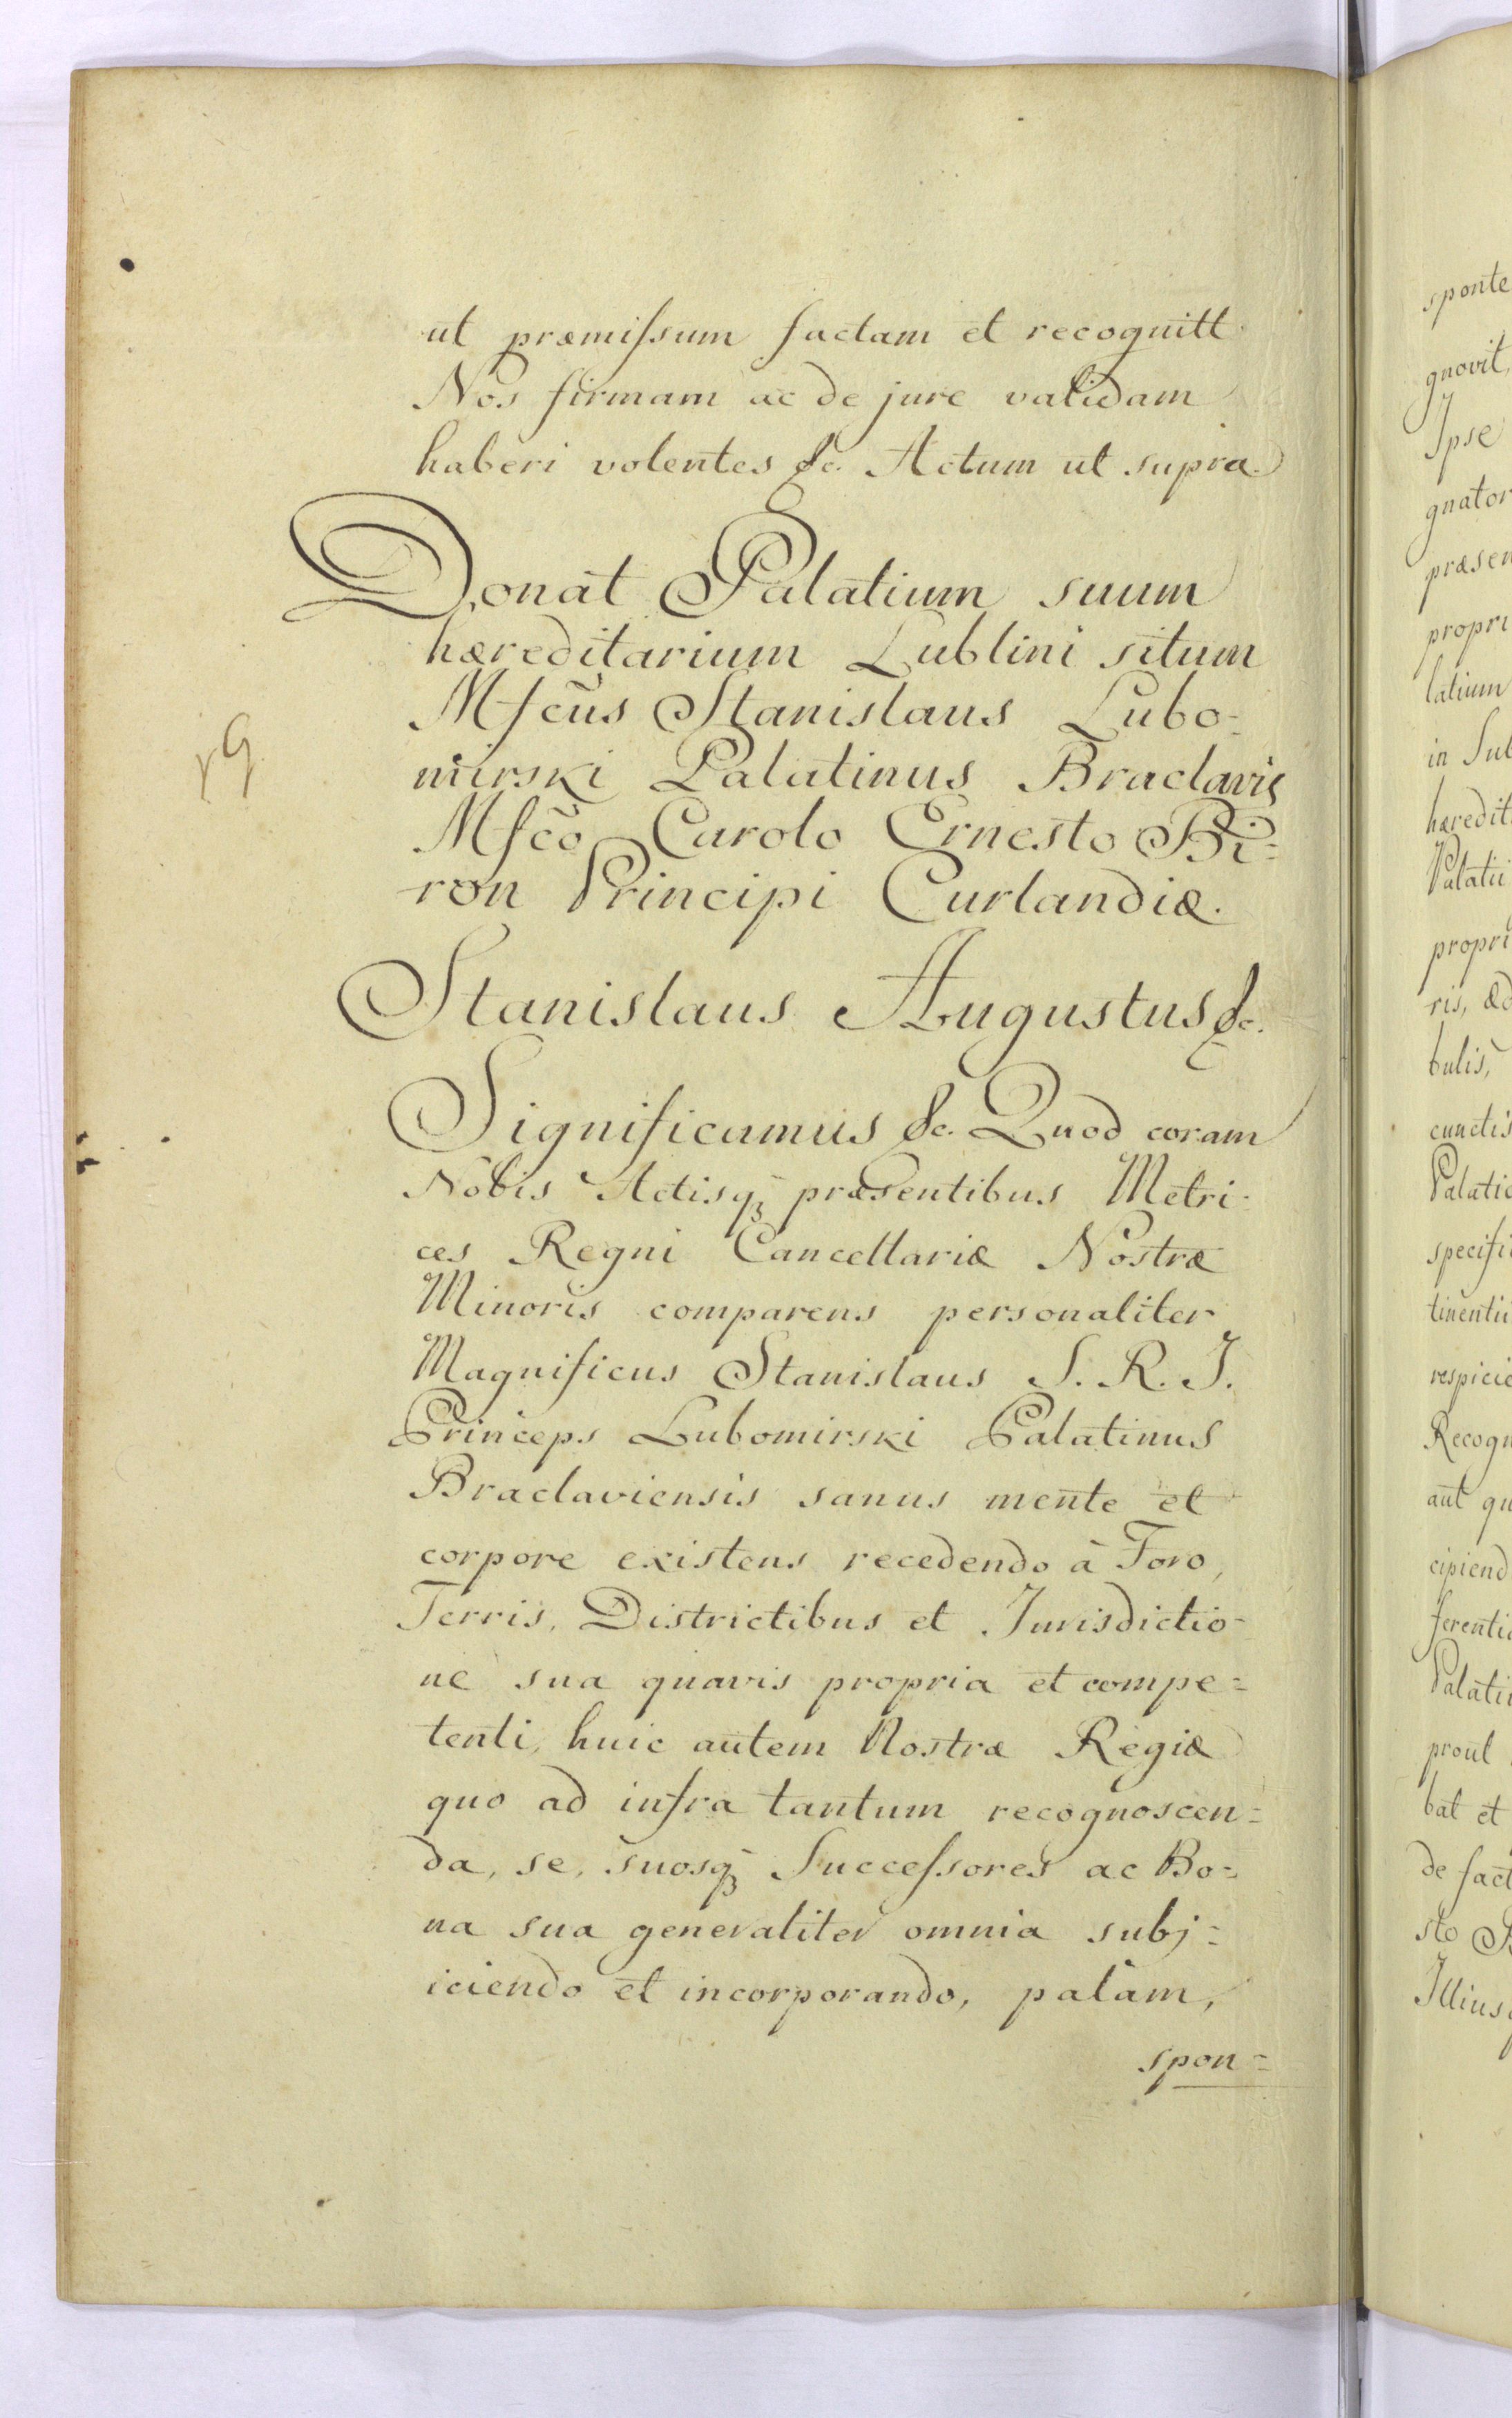 ut præmissum factam et recoguitt
Nos firmam ac de jure validam
haberi volentes &c. Actum ut supra.
Donat Palatium suum
hæreditarium Lublini situm
Mfcus Stanislaus Lubo=
mirski Palatinus Braclavis
Mfco Carolo Ernesto Bi=
ron Principi Curlandiæ.
Stanislaus Augustus &c.
Significamus &c. Quod coram
Nobis Actisq præsentibus Metri-
ces Regni Cancellariæ Nostræ
Minoris comparens personaliter
Magnificus Stanislaus S. R. I.
Princeps Lubomirski Palatinus
Braclaviensis sanus mente et
corpore existens recedendo à Foro,
Terris, Districtibus et Jurisdictio=
ne sua quavis propria et compe=
tenti, huic autem Nostræ Regiæ
quo ad infra tantum recognoscen=
da, se, suosq Successores ac Bo=
na sua generaliter omnia subj=
iciendo et incorporando, palam,
spon=
sponte
gnovit,
Ipse
gnator
præsen
propri
latium
in Sub
hæredit
Palatii
propri
ris, æd
bulis,
cunctis
Palatio
specifi
tinentii
respicie
Recogn
aut qu
cipiend
ferentia
Palati
prout
bat et
de fact
sto B
Illius